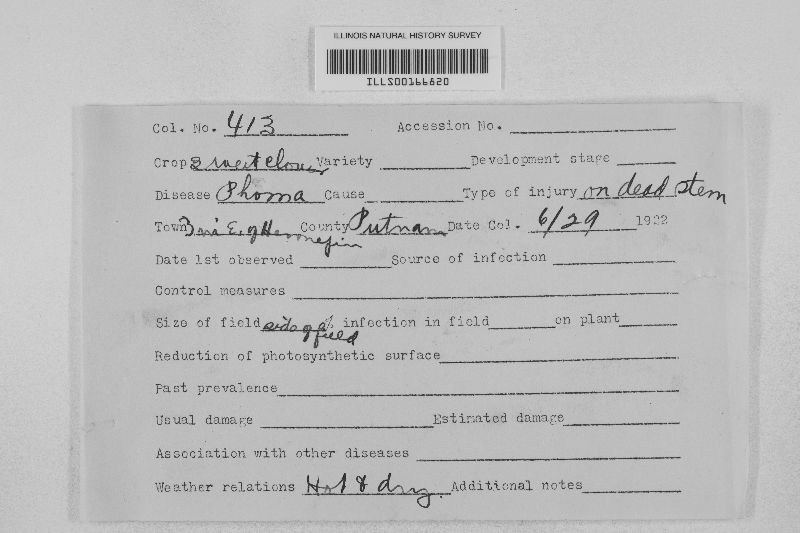 ILLINOIS NATURAL HISTORY SURVEY
ILLS00166820
Col. No. 413 Accession No.
Crop Sweet clover Variety Development stage
Disease Phoma Cause Type of injury on dead stem
Town 3 mi E. of Hennepin County Putnam Date Col. 6/29 1922
Date 1st observed Source of infection
Control measures
Size of field side of a field % infection in field on plant
Reduction of photosynthetic surface
Past prevalence
Usual damage Estimated damage
Association with other diseases
Weather relations Hot & dry. Additional notes